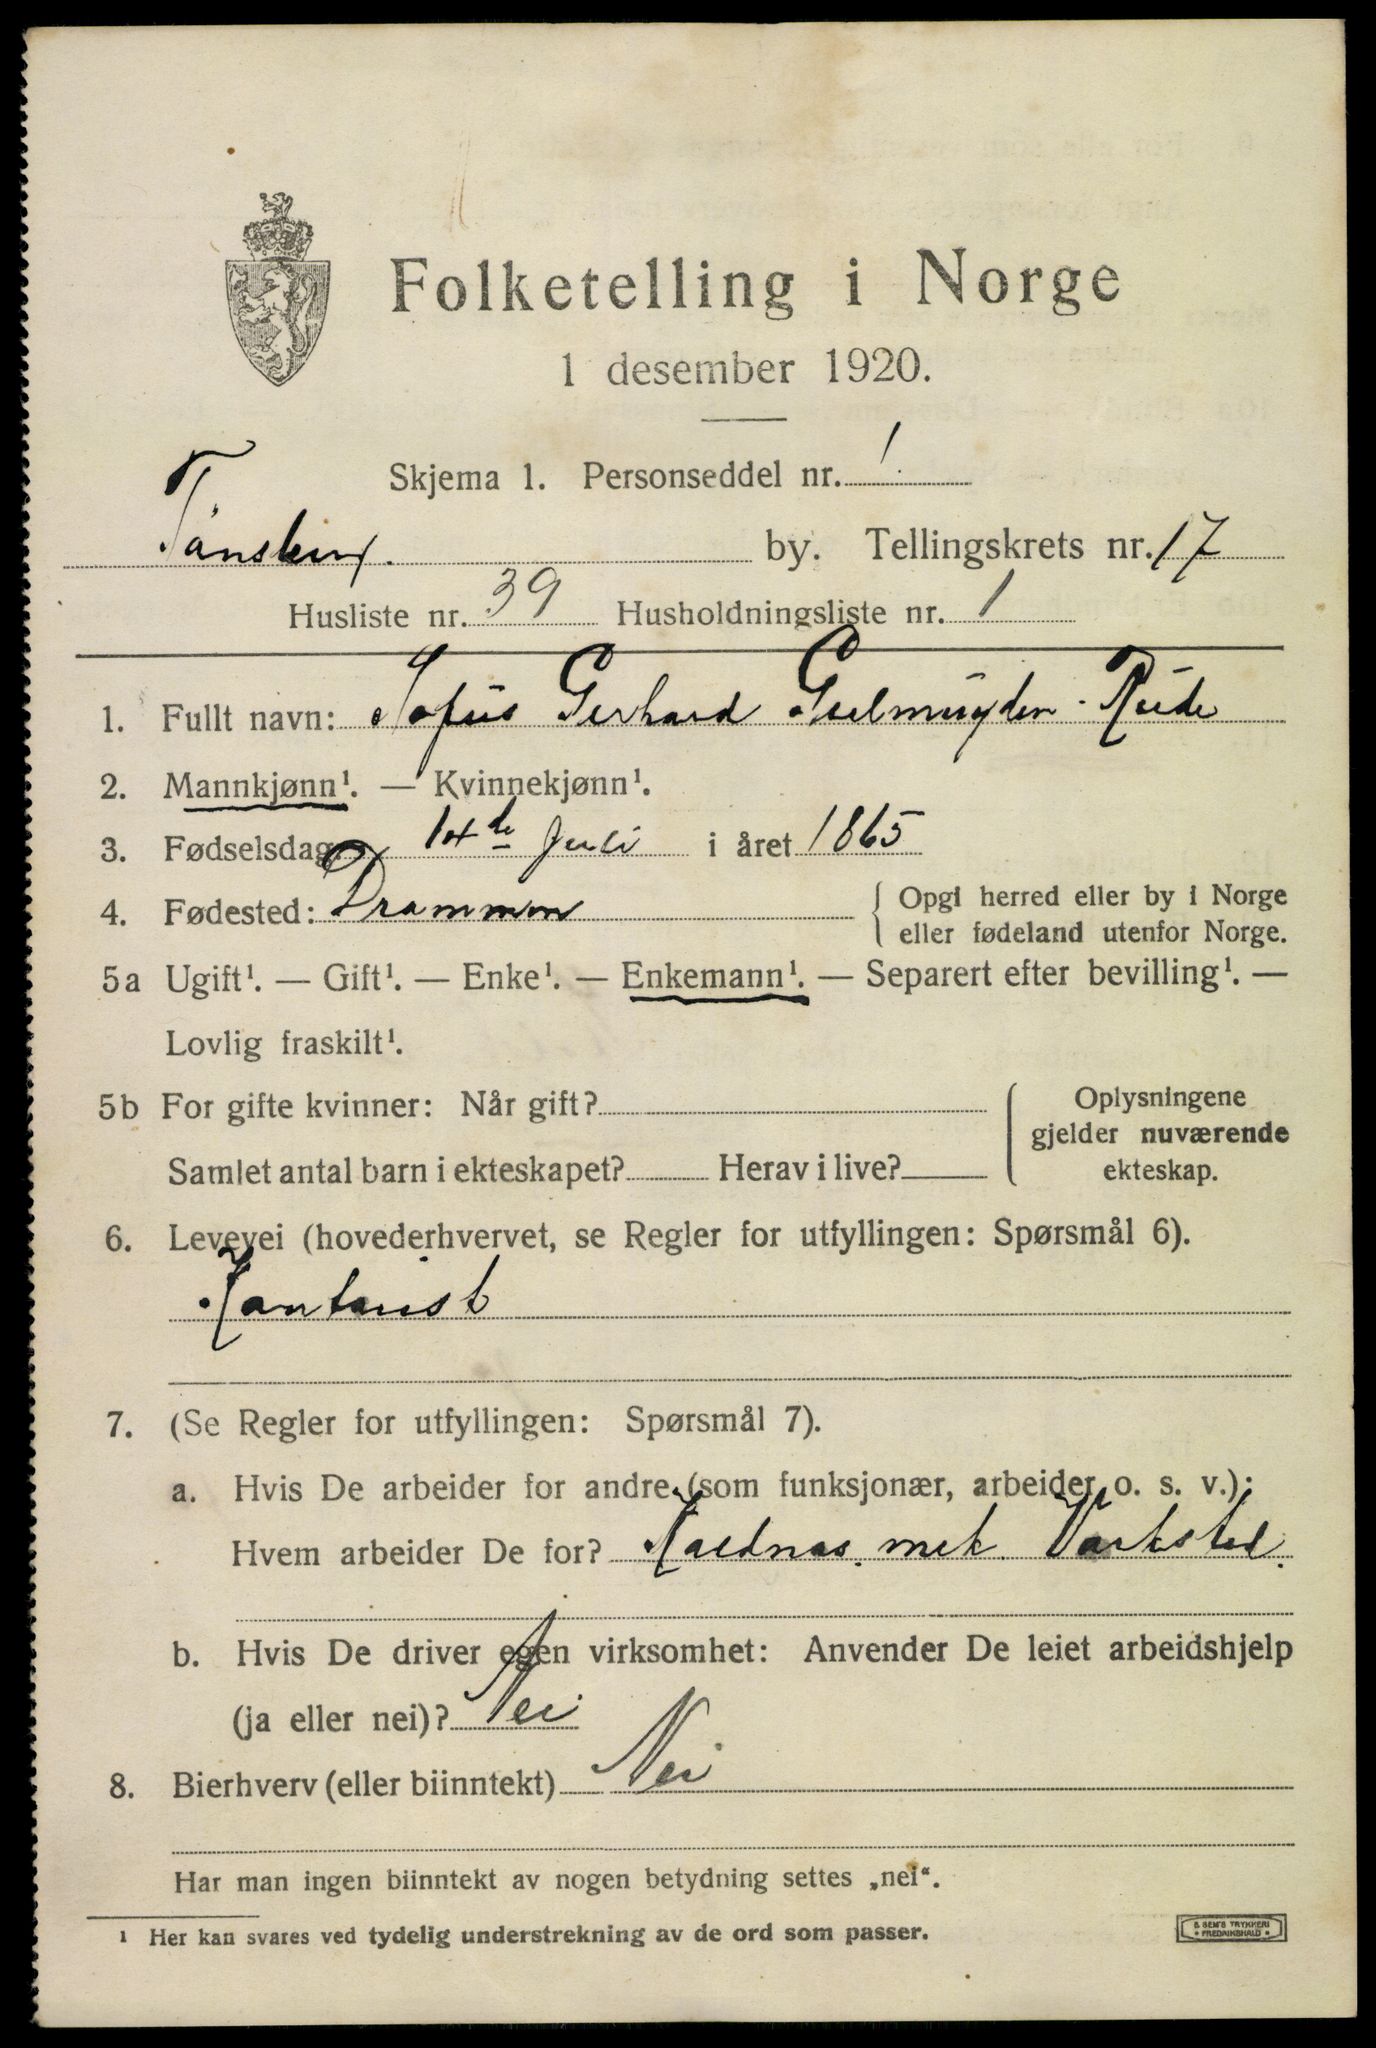 Folketelling i Norge
1 desember 1920.
Skjema 1. Personseddel nr. 1.
Tønsberg. by. Tellingskrets nr. 17
Husliste nr. 39 Husholdningsliste nr. 1
1. Fullt navn: Sofus Gerhard Geelmuyden Rude
2. Mannkjønn¹. — Kvinnekjønn¹.
3. Fødselsdag 14de Juli i året 1865
4. Fødested: Drammen { Opgi herred eller by i Norge
eller fødeland utenfor Norge.
5a Ugift¹. — Gift¹. — Enke¹. — Enkemann¹. — Separert efter bevilling¹. —
Lovlig fraskilt¹.
5b For gifte kvinner: Når gift? Oplysningene
gjelder nuværende
Samlet antal barn i ekteskapet? Herav i live? ekteskap.
6. Levevei (hovederhvervet, se Regler for utfyllingen: Spørsmål 6).
Kontorist
7. (Se Regler for utfyllingen: Spørsmål 7).
a. Hvis De arbeider for andre (som funksjonær, arbeider o. s. v.):
Hvem arbeider De for? Kaldnas. mek. Varksted.
b. Hvis De driver egen virksomhet: Anvender De leiet arbeidshjelp
(ja eller nei)? Nei
8. Bierhverv (eller biinntekt) Nei
Har man ingen biinntekt av nogen betydning settes „nei“.
¹ Her kan svares ved tydelig understrekning av de ord som passer.
S SEM'S TRYKKERI
• FREDRIKSHALD •